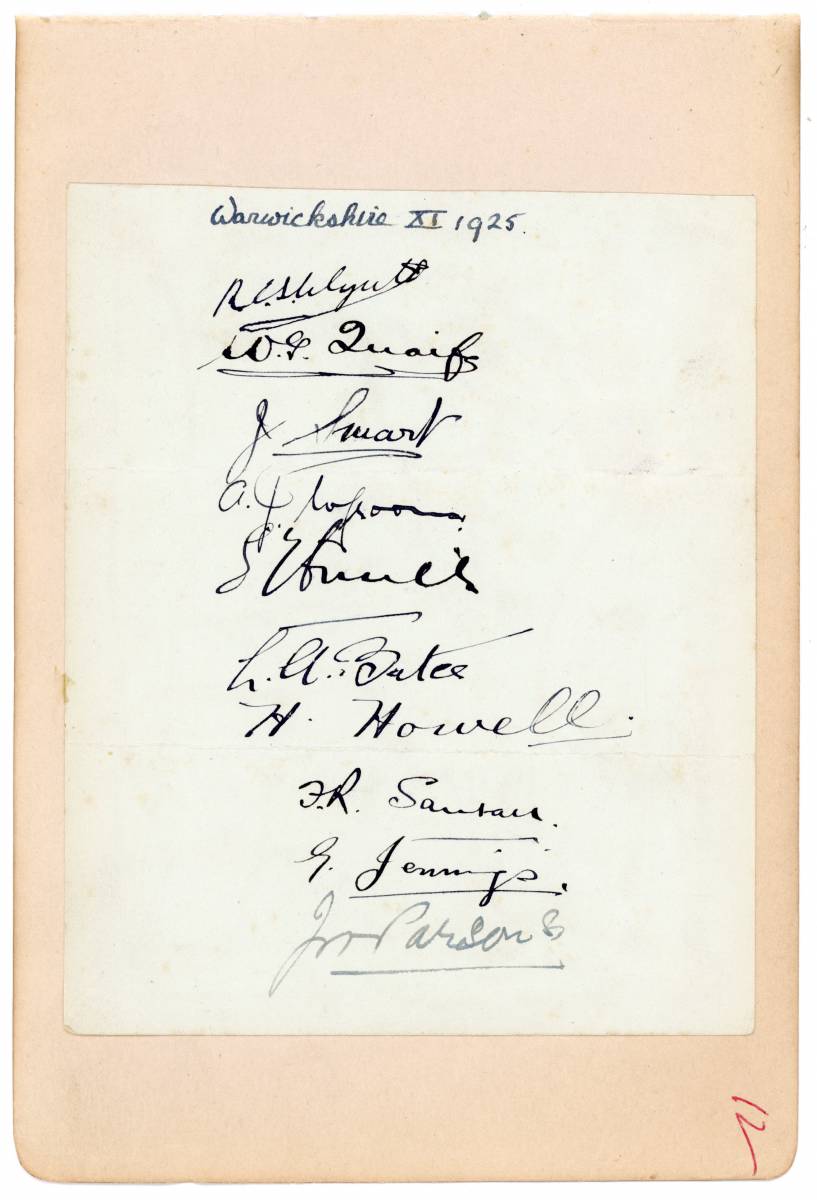 Warwickshire XI 1925.
R.E.S. Wyatt
W.G. Quaife
J. Smart
A.
L.A. Bates
H. Howell.
F.R. Santall.
G. Jennings.
Parsons
12